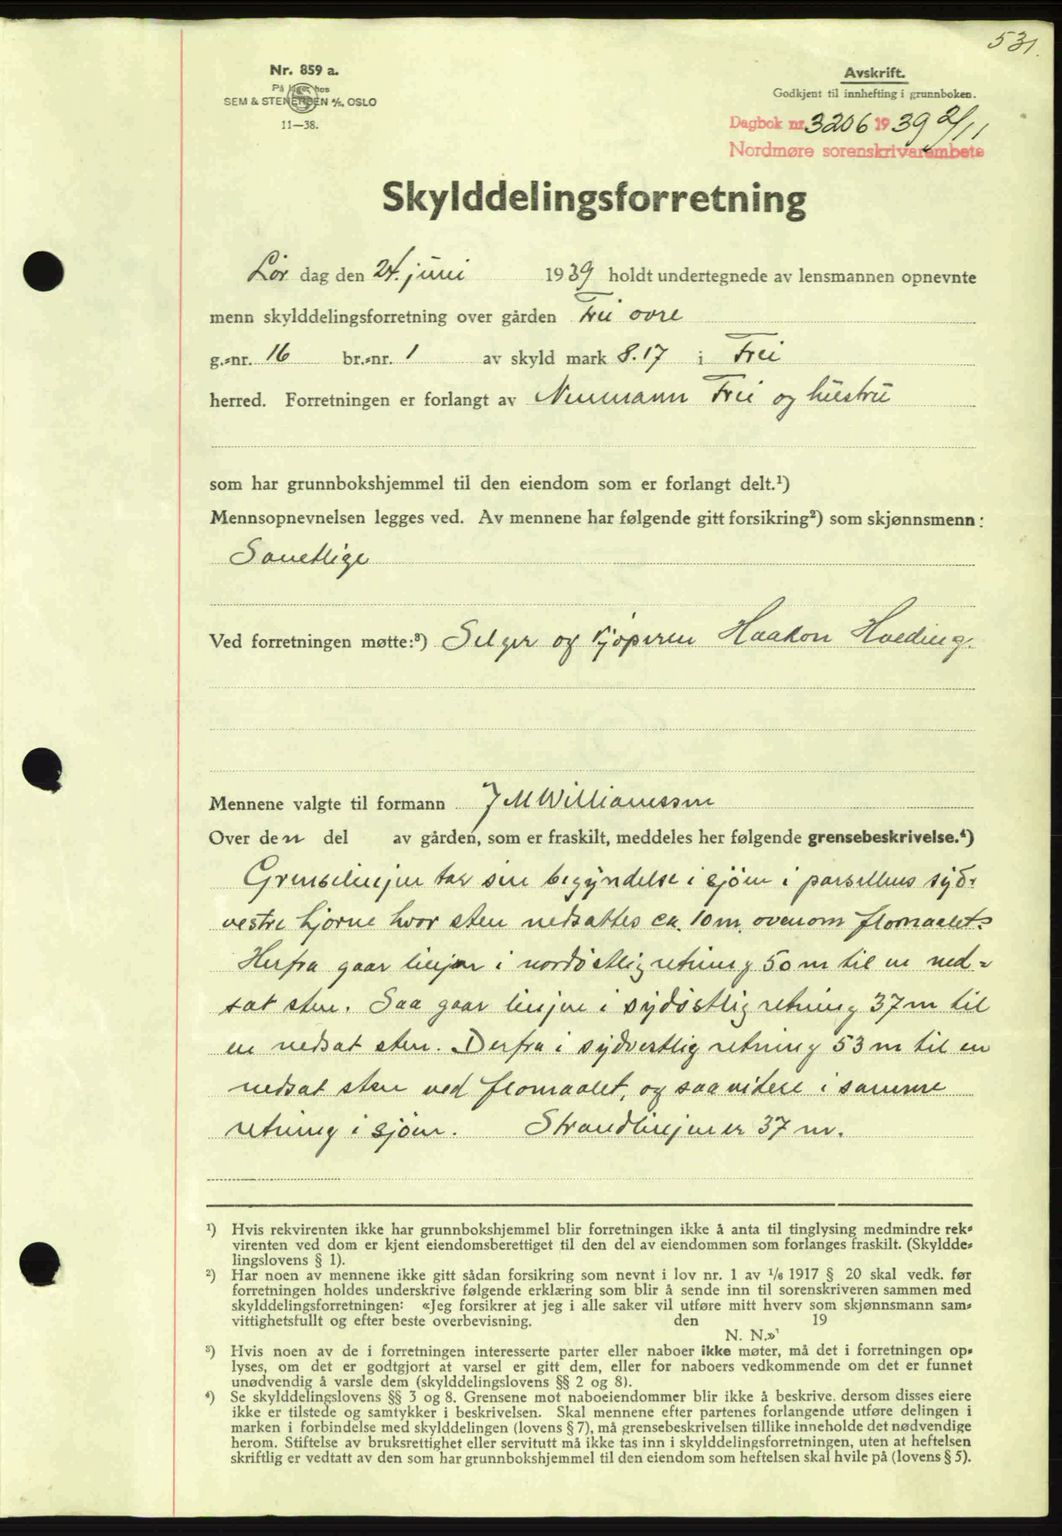 531.
Nr. 859 a.
På lager hos
SEM & STENERSEN A/S, OSLO
11—38.
Avskrift.
Godkjent til innhefting i grunnboken.
Dagbok nr. 3206 1939 2/11
Nordmøre sorenskrivarembete
Skylddelingsforretning
Lør dag den 24. juni 1939 holdt undertegnede av lensmannen opnevnte
menn skylddelingsforretning over gården Frei øvre
g.-nr. 16 br.-nr. 1 av skyld mark 8.17 i Frei
herred. Forretningen er forlangt av Neumann Frei og hustru
som har grunnbokshjemmel til den eiendom som er forlangt delt.¹)
Mennsopnevnelsen legges ved. Av mennene har følgende gitt forsikring²) som skjønnsmenn:
Samtlige
Ved forretningen møtte:³) Selger og kjøperen Haakon
Mennene valgte til formann J M Williamssen
Over den del av gården, som er fraskilt, meddeles her følgende grensebeskrivelse.⁴)
Grenselinjen tar sin begyndelse i sjøen i parsellens syd-
vestre hjørne hvor sten nedsattes ca. 10 m. ovenom flomaalet.
Herfra gaar linjen i nordöstlig retning 50 m til en ned-
sat sten. Saa gaar linjen i sydöstlig retning 37 m til
en nedsat sten. Derfra i sydvestlig retning 53 m til en
nedsat sten ved flomaalet, og saa videre i samme
retning i sjöen. Strandlinjen er 37 m.
¹) Hvis rekvirenten ikke har grunnbokshjemmel blir forretningen ikke å anta til tinglysing medmindre rek-
virenten ved dom er kjent eiendomsberettiget til den del av eiendommen som forlanges fraskilt. (Skyldde-
lingslovens § 1).
²) Har noen av mennene ikke gitt sådan forsikring som nevnt i lov nr. 1 av 1/6 1917 § 20 skal vedk. før
forretningen holdes underskrive følgende erklæring som blir å sende inn til sorenskriveren sammen med
skylddelingsforretningen: «Jeg forsikrer at jeg i alle saker vil utføre mitt hverv som skjønnsmann sam-
vittighetsfullt og efter beste overbevisning. den 19
N. N.»
³) Hvis noen av de i forretningen interesserte parter eller naboer ikke møter, må det i forretningen op-
lyses, om det er godtgjort at varsel er gitt dem, eller for naboers vedkommende om det er funnet
unødvendig å varsle dem (skylddelingslovens §§ 2 og 8).
⁴) Se skylddelingslovens §§ 3 og 8. Grensene mot naboeiendommer blir ikke å beskrive, dersom disses eiere
ikke er tilstede og samtykker i beskrivelsen. Skal mennene efter partenes forlangende utføre delingen i
marken i forbindelse med skylddelingen (lovens § 7), må grensebeskrivelsen tillike inneholde det nødvendige
herom. Stiftelse av bruksrettighet eller servitutt må ikke tas inn i skylddelingsforretningen, uten at heftelsen
skriftlig er vedtatt av den som har grunnbokshjemmel til den eiendom som heftelsen skal hvile på (lovens § 5).